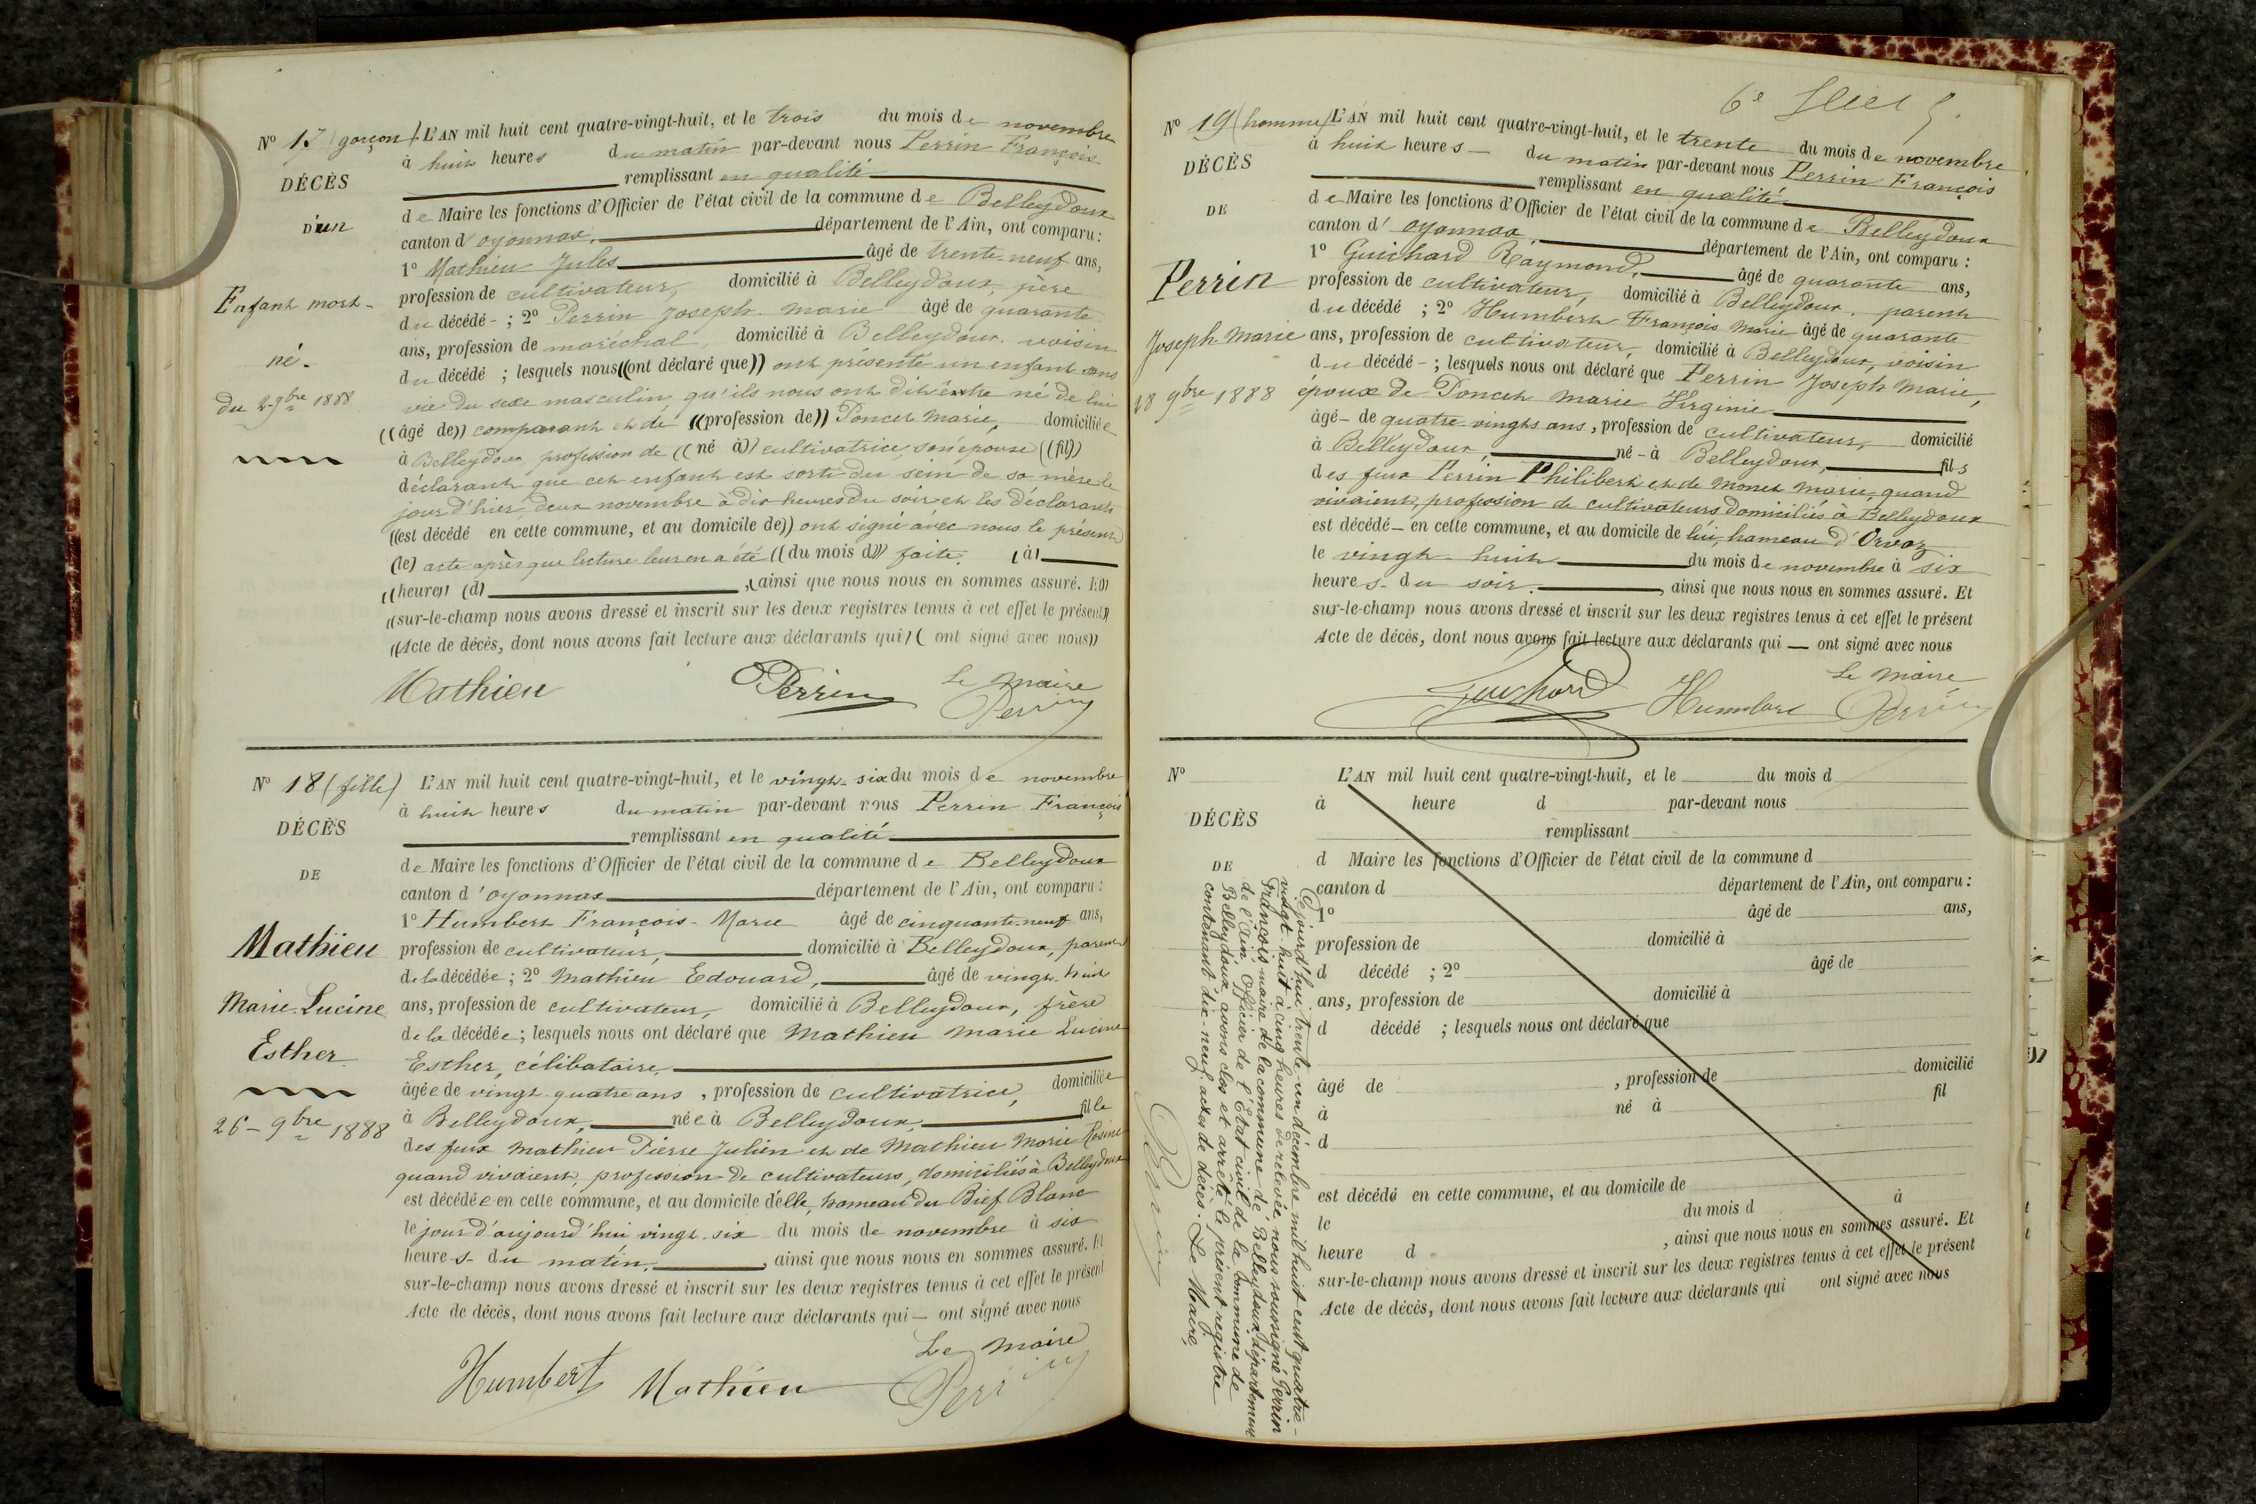 Nº 17 (garçon)
DÉCÈS
D'un
Enfant mort-
né.
du 2 9bre 1888
L'AN mil huit cent quatre-vingt-huit, et le trois du mois de novembre
à huit heures du matin par-devant nous Perrin François
remplissant en qualité
de Maire les fonctions d'Officier de l'état civil de la commune de Belleydoux
canton d'oyonnax, département de l'Ain, ont comparu :
1º Mathieu Jules âgé de trente-neuf ans,
profession de cultivateur, domicilié à Belleydoux, père
du décédé - ; 2º Perrin Joseph-Marie âgé de quarante
ans, profession de maréchal, domicilié à Belleydoux, voisin
du décédé ; lesquels nous ((ont déclaré que)) ont présenté un enfant sans
vie du sexe masculin qu'ils nous ont dit être né de lui
((âgé de)) comparant et de ((profession de)) Poncet Marie, domiciliée
à Belleydoux profession de ((né à)) cultivatrice son épouse ((fil))
déclarant que cet enfant est sorti du sein de sa mère le
jour d'hier deux novembre à dix heures du soir et les déclarants
((est décédé en cette commune, et au domicile de)) ont signé avec nous le présent
(le) acte après que lecture leur en a été ((du mois d)) faite. (à)
((heure)) (d) , (ainsi que nous nous en sommes assuré. Et))
((sur-le-champ nous avons dressé et inscrit sur les deux registres tenus à cet effet le présent))
((Acte de décès, dont nous avons fait lecture aux déclarants qui) ( ont signé avec nous))
Mathieu Perrin Le Maire
Perrin
Nº 18 (fille)
DÉCÈS
DE
Mathieu
Marie-Lucine
Esther
26 - 9bre 1888
L'AN mil huit cent quatre-vingt-huit, et le vingt-six du mois de novembre
à huit heures du matin par-devant nous Perrin François
remplissant en qualité
de Maire les fonctions d'Officier de l'état civil de la commune de Belleydoux
canton d'oyonnax département de l'Ain, ont comparu :
1º Humbert François-Marie âgé de cinquante-neuf ans,
profession de cultivateur, domicilié à Belleydoux, parent
de la décédée ; 2º Mathieu Edouard, âgé de vingt-huit
ans, profession de cultivateur, domicilié à Belleydoux, frère
de la décédée ; lesquels nous ont déclaré que Mathieu Marie Lucine
Esther, célibataire,
âgée de vingt-quatre ans , profession de cultivatrice, domiciliée
à Belleydoux, née à Belleydoux, fille
des feux Mathieu Pierre Julien et de Mathieu Marie Rosine
quand vivaient, profession de cultivateurs, domiciliés à Belleydoux
est décédée en cette commune, et au domicile d'elle, hameau du Bief Blanc
le jour d'aujourd'hui vingt-six du mois de novembre à six
heures du matin, , ainsi que nous nous en sommes assuré. Et
sur-le-champ nous avons dressé et inscrit sur les deux registres tenus à cet effet le présent
Acte de décès, dont nous avons fait lecture aux déclarants qui — ont signé avec nous
Humbert Mathieu Le Maire
Perrin
6e
Nº 19 (homme)
DÉCÈS
DE
Perrin
Joseph Marie
28 9bre 1888
L'AN mil huit cent quatre-vingt-huit, et le trente du mois de novembre
à huit heures - du matin par-devant nous Perrin François
remplissant en qualité
de Maire les fonctions d'Officier de l'état civil de la commune de Belleydoux
canton d'oyonnax, département de l'Ain, ont comparu :
1º Guichard Raymond, âgé de quarante ans,
profession de cultivateur, domicilié à Belleydoux, parent
du décédé ; 2º Humbert François Marie âgé de quarante
ans, profession de cultivateur, domicilié à Belleydoux, voisin
du décédé - ; lesquels nous ont déclaré que Perrin Joseph Marie,
époux de Poncet Marie Virginie
âgé - de quatre-vingts ans, profession de cultivateur, domicilié
à Belleydoux, né - à Belleydoux, fils
des feux Perrin Philibert et de Monet Marie, quand
vivaient, profession de cultivateurs domiciliés à Belleydoux
est décédé - en cette commune, et au domicile de lui, hameau d'Orvaz
le vingt-huit du mois de novembre à six
heures du soir. , ainsi que nous nous en sommes assuré. Et
sur-le-champ nous avons dressé et inscrit sur les deux registres tenus à cet effet le présent
Acte de décès, dont nous avons fait lecture aux déclarants qui — ont signé avec nous
Guichard Humbert Le Maire
Perrin
Nº
DÉCÈS
DE
L'AN mil huit cent quatre-vingt-huit, et le du mois d
à heure d par-devant nous
remplissant
d Maire les fonctions d'Officier de l'état civil de la commune d
canton d département de l'Ain, ont comparu :
1º âgé de ans,
profession de domicilié à
d décédé ; 2º âgé de
ans, profession de domicilié à
d décédé ; lesquels nous ont déclaré que
âgé de , profession de domicilié
à né à fil
d
est décédé en cette commune, et au domicile de
le du mois d à
heure d , ainsi que nous nous en sommes assuré. Et
sur-le-champ nous avons dressé et inscrit sur les deux registres tenus à cet effet le présent
Acte de décès, dont nous avons fait lecture aux déclarants qui ont signé avec nous
Cejourd'hui, trente-un décembre mil huit cent quatre-
vingt-huit à cinq heures de relevée, nous soussigné Perrin
François maire de la commune de Belleydoux, département
de l'Ain, Officier de l'État civil de la Commune de
Belleydoux, avons clos et arrêté le présent registre
contenant dix-neuf actes de décès. Le Maire,
Perrin